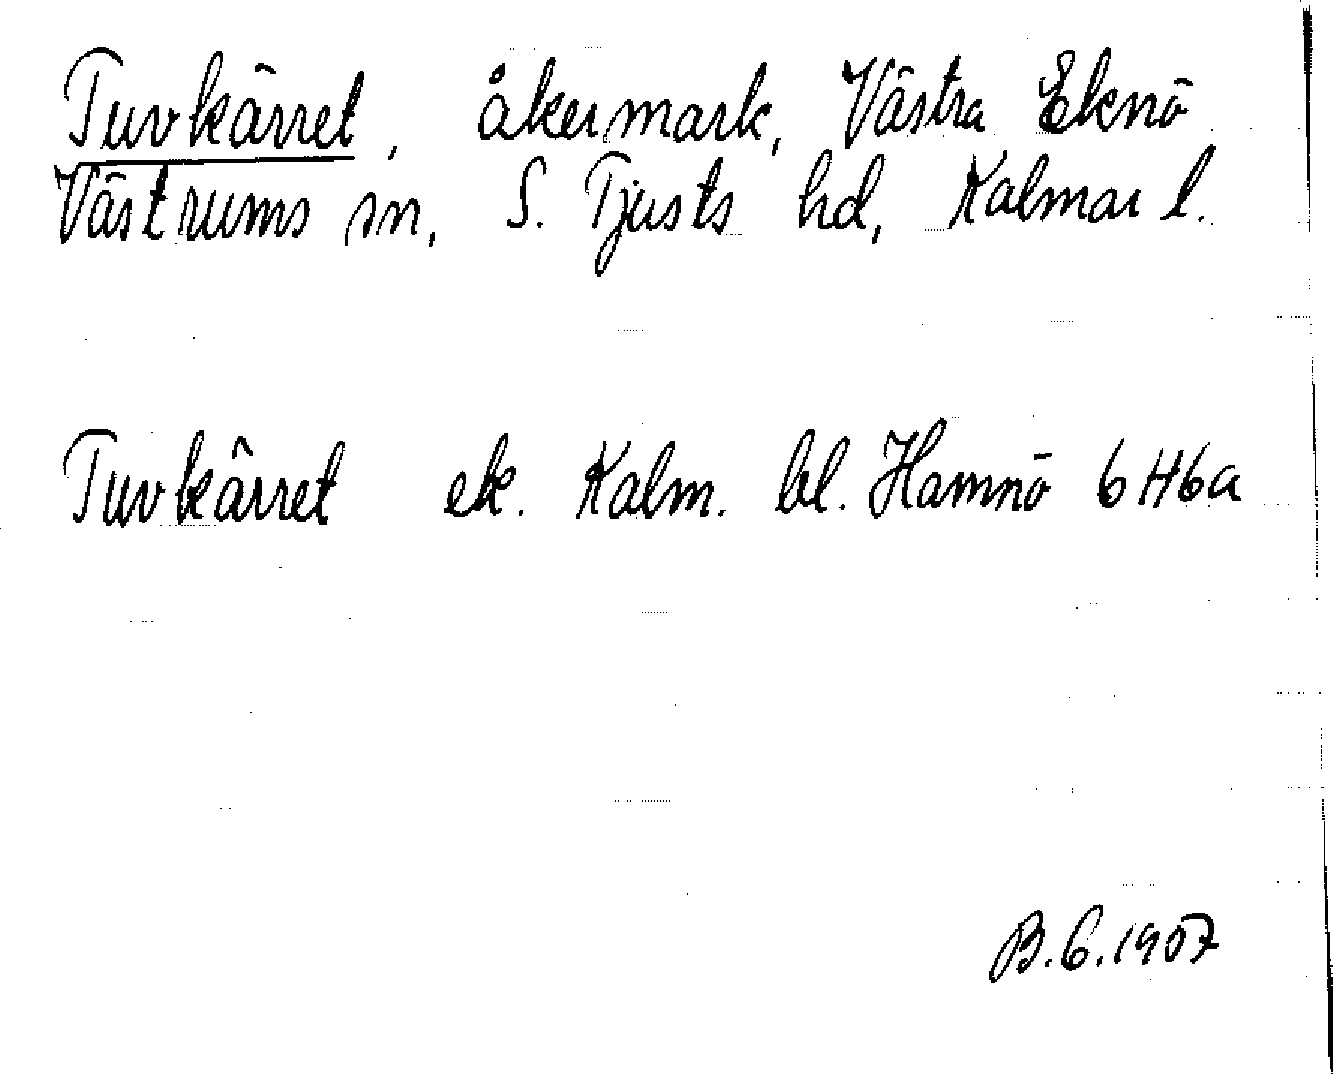 Tuvkärret, åkermark, Västra Eknö
Västrums sn, S. Tjusts hd, Kalmar l.
Tuvkärret ek. Kalm. bl. Hamnö 6H6a
B.G.1907